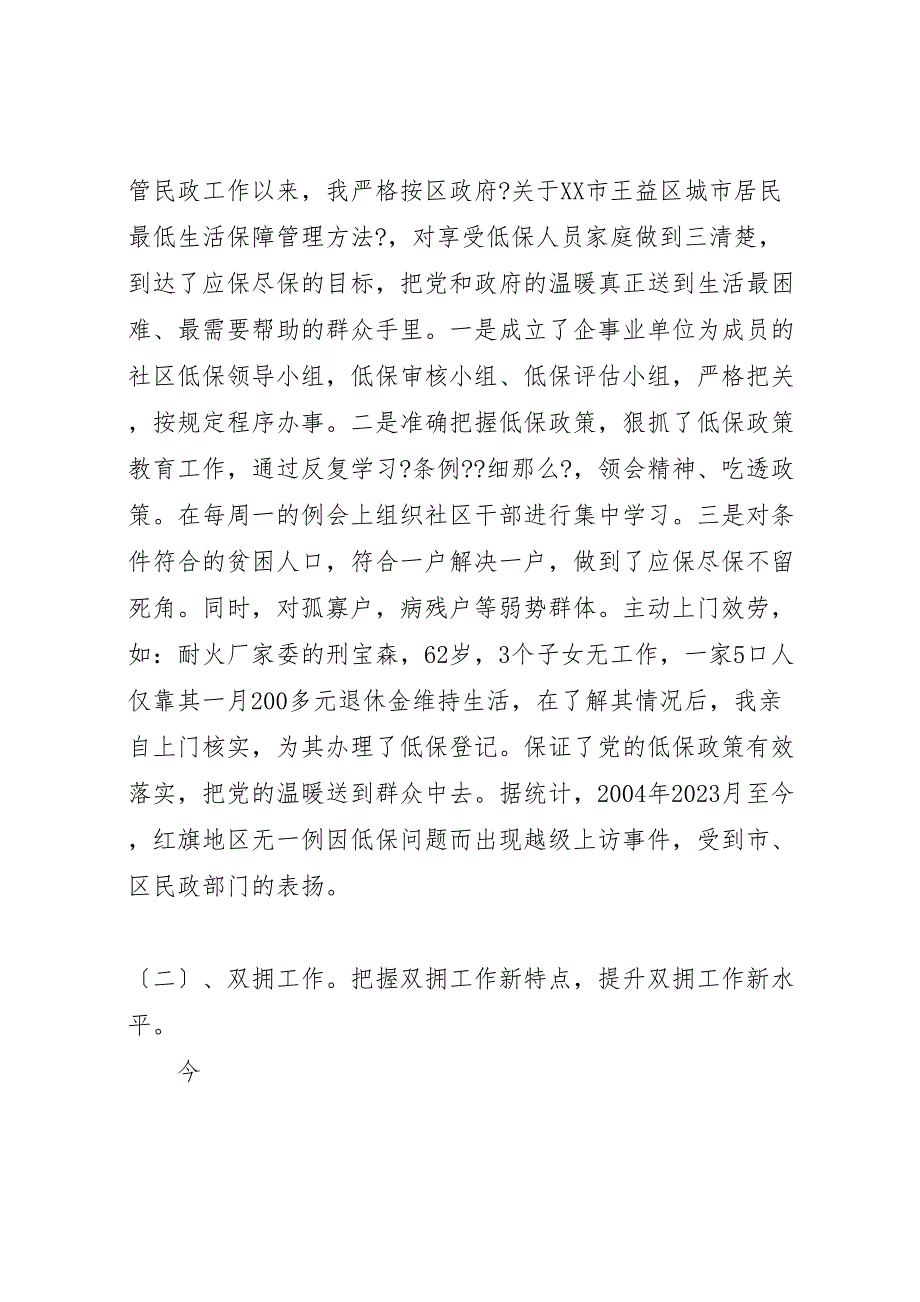 管民政工作以来，我严格按区政府?关于XX市王益区城市居民
最低生活保障管理方法?，对享受低保人员家庭做到三清楚，
到达了应保尽保的目标，把党和政府的温暖真正送到生活最困
难、最需要帮助的群众手里。一是成立了企事业单位为成员的
社区低保领导小组，低保审核小组、低保评估小组，严格把关
，按规定程序办事。二是准确把握低保政策，狠抓了低保政策
教育工作，通过反复学习?条例??细那么?，领会精神、吃透政
策。在每周一的例会上组织社区干部进行集中学习。三是对条
件符合的贫困人口，符合一户解决一户，做到了应保尽保不留
死角。同时，对孤寡户，病残户等弱势群体。主动上门效劳，
如：耐火厂家委的刑宝森，62岁，3个子女无工作，一家5口人
仅靠其一月200多元退休金维持生活，在了解其情况后，我亲
自上门核实，为其办理了低保登记。保证了党的低保政策有效
落实，把党的温暖送到群众中去。据统计，2004年2023月至今
，红旗地区无一例因低保问题而出现越级上访事件，受到市、
区民政部门的表扬。
〔二〕、双拥工作。把握双拥工作新特点，提升双拥工作新水
平。
今